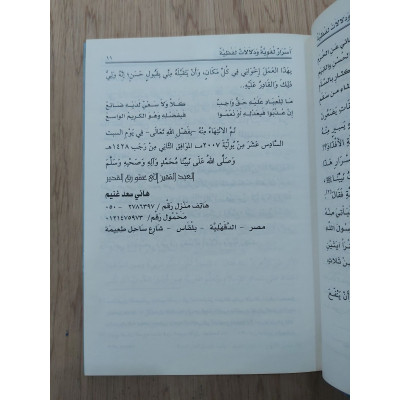 أسرار لغوية ودلالات لفظية
١١
بِهَذَا الْعَمَلِ إِخْوَانِي فِي كُلِّ مَكَانٍ، وَأَنْ يَتَقَبَّلَهُ مِنِّي بِقَبُولٍ حَسَنٍ؛ إِنَّهُ وَلِيُّ
ذَلِكَ وَالْقَادِرُ عَلَيْهِ..
مَا لِلْعِبَادِ عَلَيْهِ حَقٌّ وَاجِبٌ كَلَّا وَلَا سَعْيٌ لَدَيْهِ ضَائِعُ
إِنْ عُذِّبُوا فَبِعَدْلِهِ أَوْ نُعِّمُوا فَبِفَضْلِهِ وَهْوَ الْكَرِيمُ الْوَاسِعُ
تَمَّ الِانْتِهَاءُ مِنْهُ -بِفَضْلِ اللهِ تَعَالَى- فِي يَوْمِ السبت
السَّادِسَ عَشَرَ مِنْ يُولْيَةَ ٢٠٠٧مـ، الْمُوَافِقِ الثَّانِي مِنْ رَجَبٍ ١٤٢٨هـ
وَصَلَّى اللهُ عَلَى نَبِيِّنَا مُحَمَّدٍ وَآلِهِ وَصَحْبِهِ وَسَلَّمَ
العبد الفقير إلى عفو ربه القدير
هاني سعد غنيم
هاتف منزل رقم/ ٢٧٨٦٣٩٧ - ٠٥٠
محمول رقم/ ٠١٢١٤٧٥٩٧٣
مصر - الدقهلية - بلقاس - شارع ساحل طعيمة